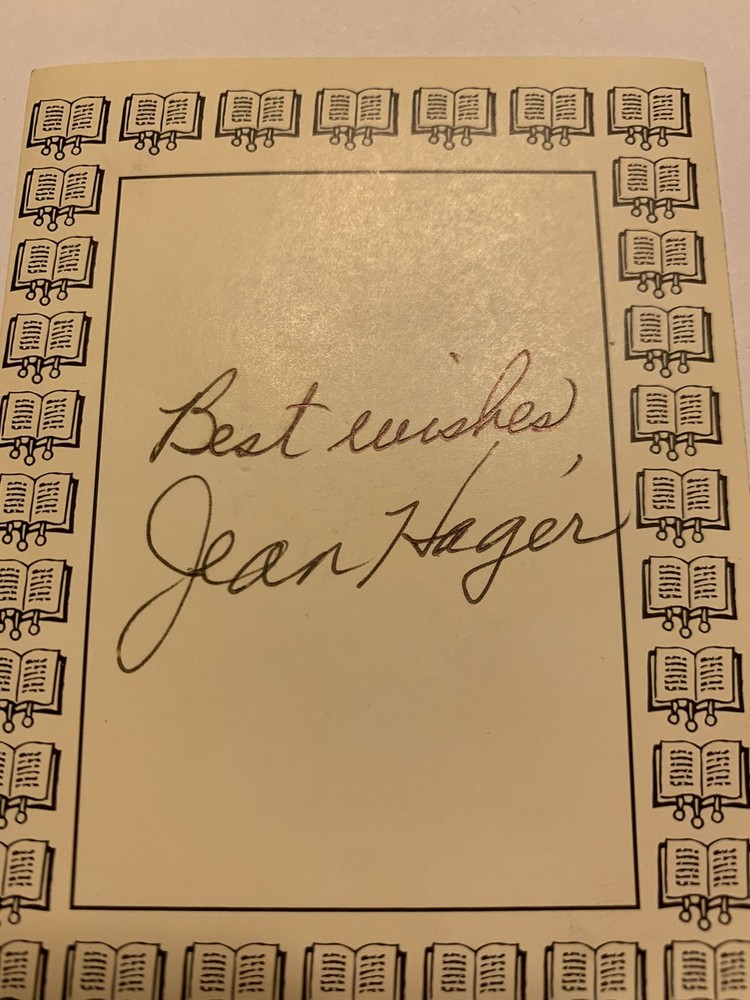 Best wishes,
Jean Hager